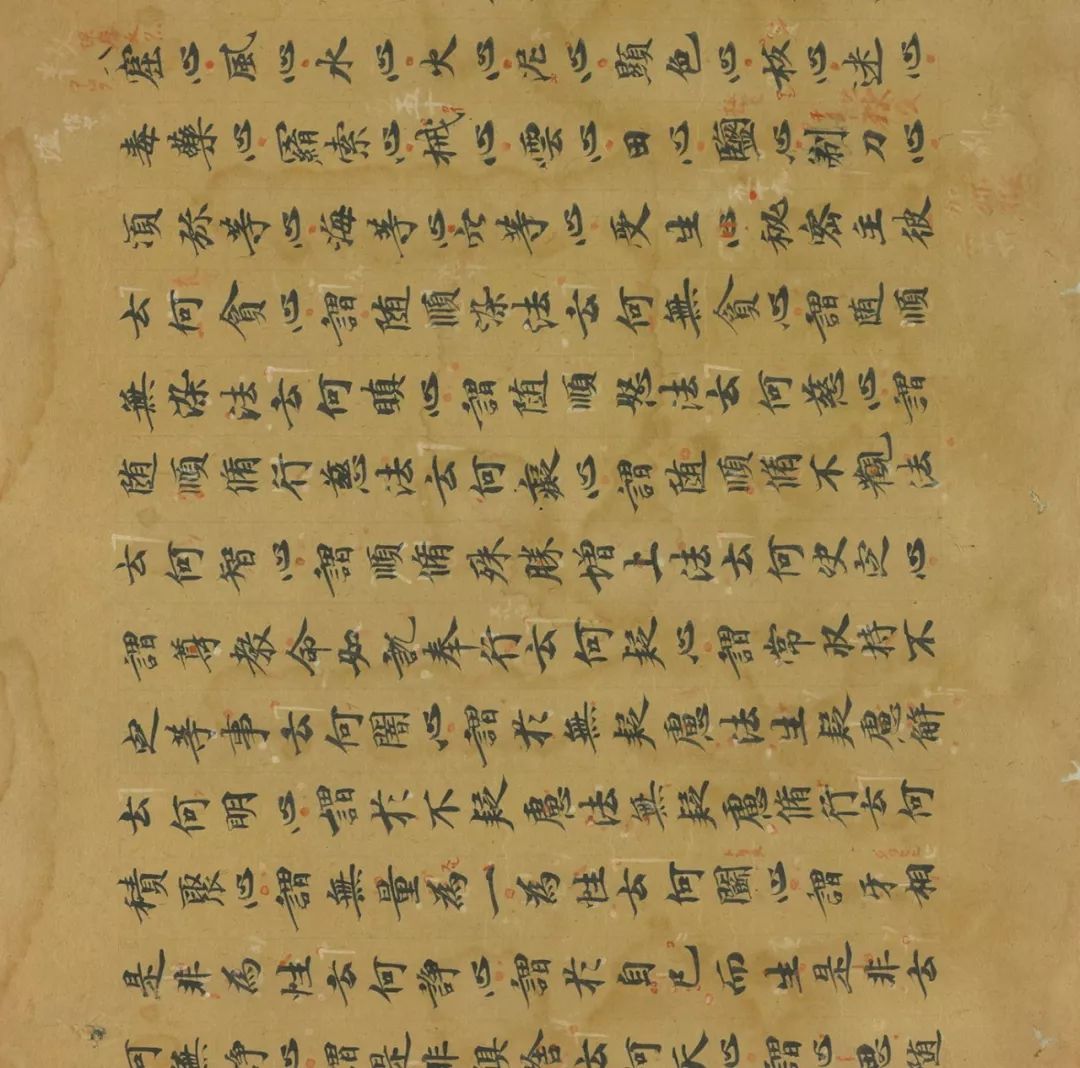 窟心風心水心火心泥心顯色心板心迷心
毒藥心羂索心械心雲心田心鹽心剃刀心
須弥等心海等心穴等心受生心秘密主彼
云何貪心謂随順染法云何無貪心謂随順
無染法云何瞋心謂随順怒法云何慈心謂
随順脩行慈法云何癡心謂随順脩不觀法
云何智心謂順脩殊勝増上法云何决定心
謂尊教命如說奉行云何疑心謂常収持不
定等事云何闇心謂於無疑慮法生疑慮解
云何明心謂於不疑慮法無疑慮脩行云何
積聚心謂無量為一為性云何鬪心謂互相
是非為性云何諍心謂於自己而生是非云
何無諍心謂是非俱捨云何天心謂心思随